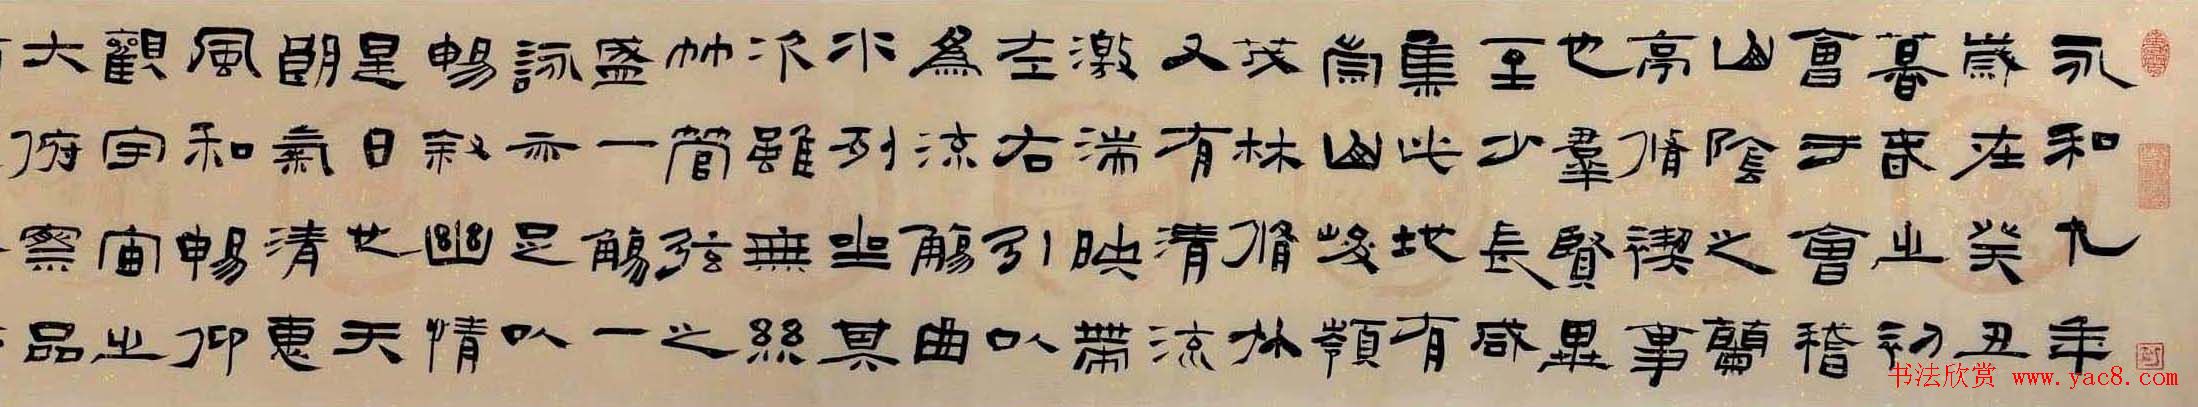 永和九年
歲在癸丑
暮春之初
會于會稽
山陰之蘭
亭脩禊事
也羣賢畢
至少長咸
集此地有
崇山峻嶺
茂林脩竹
又有清流
激湍映帶
左右引以
爲流觴曲
水列坐其
次雖無絲
竹管弦之
盛一觴一
詠亦足以
暢敘幽情
是日也天
朗氣清惠
風和暢仰
觀宇宙之
大俯察品
书法欣赏 www.yac8.com